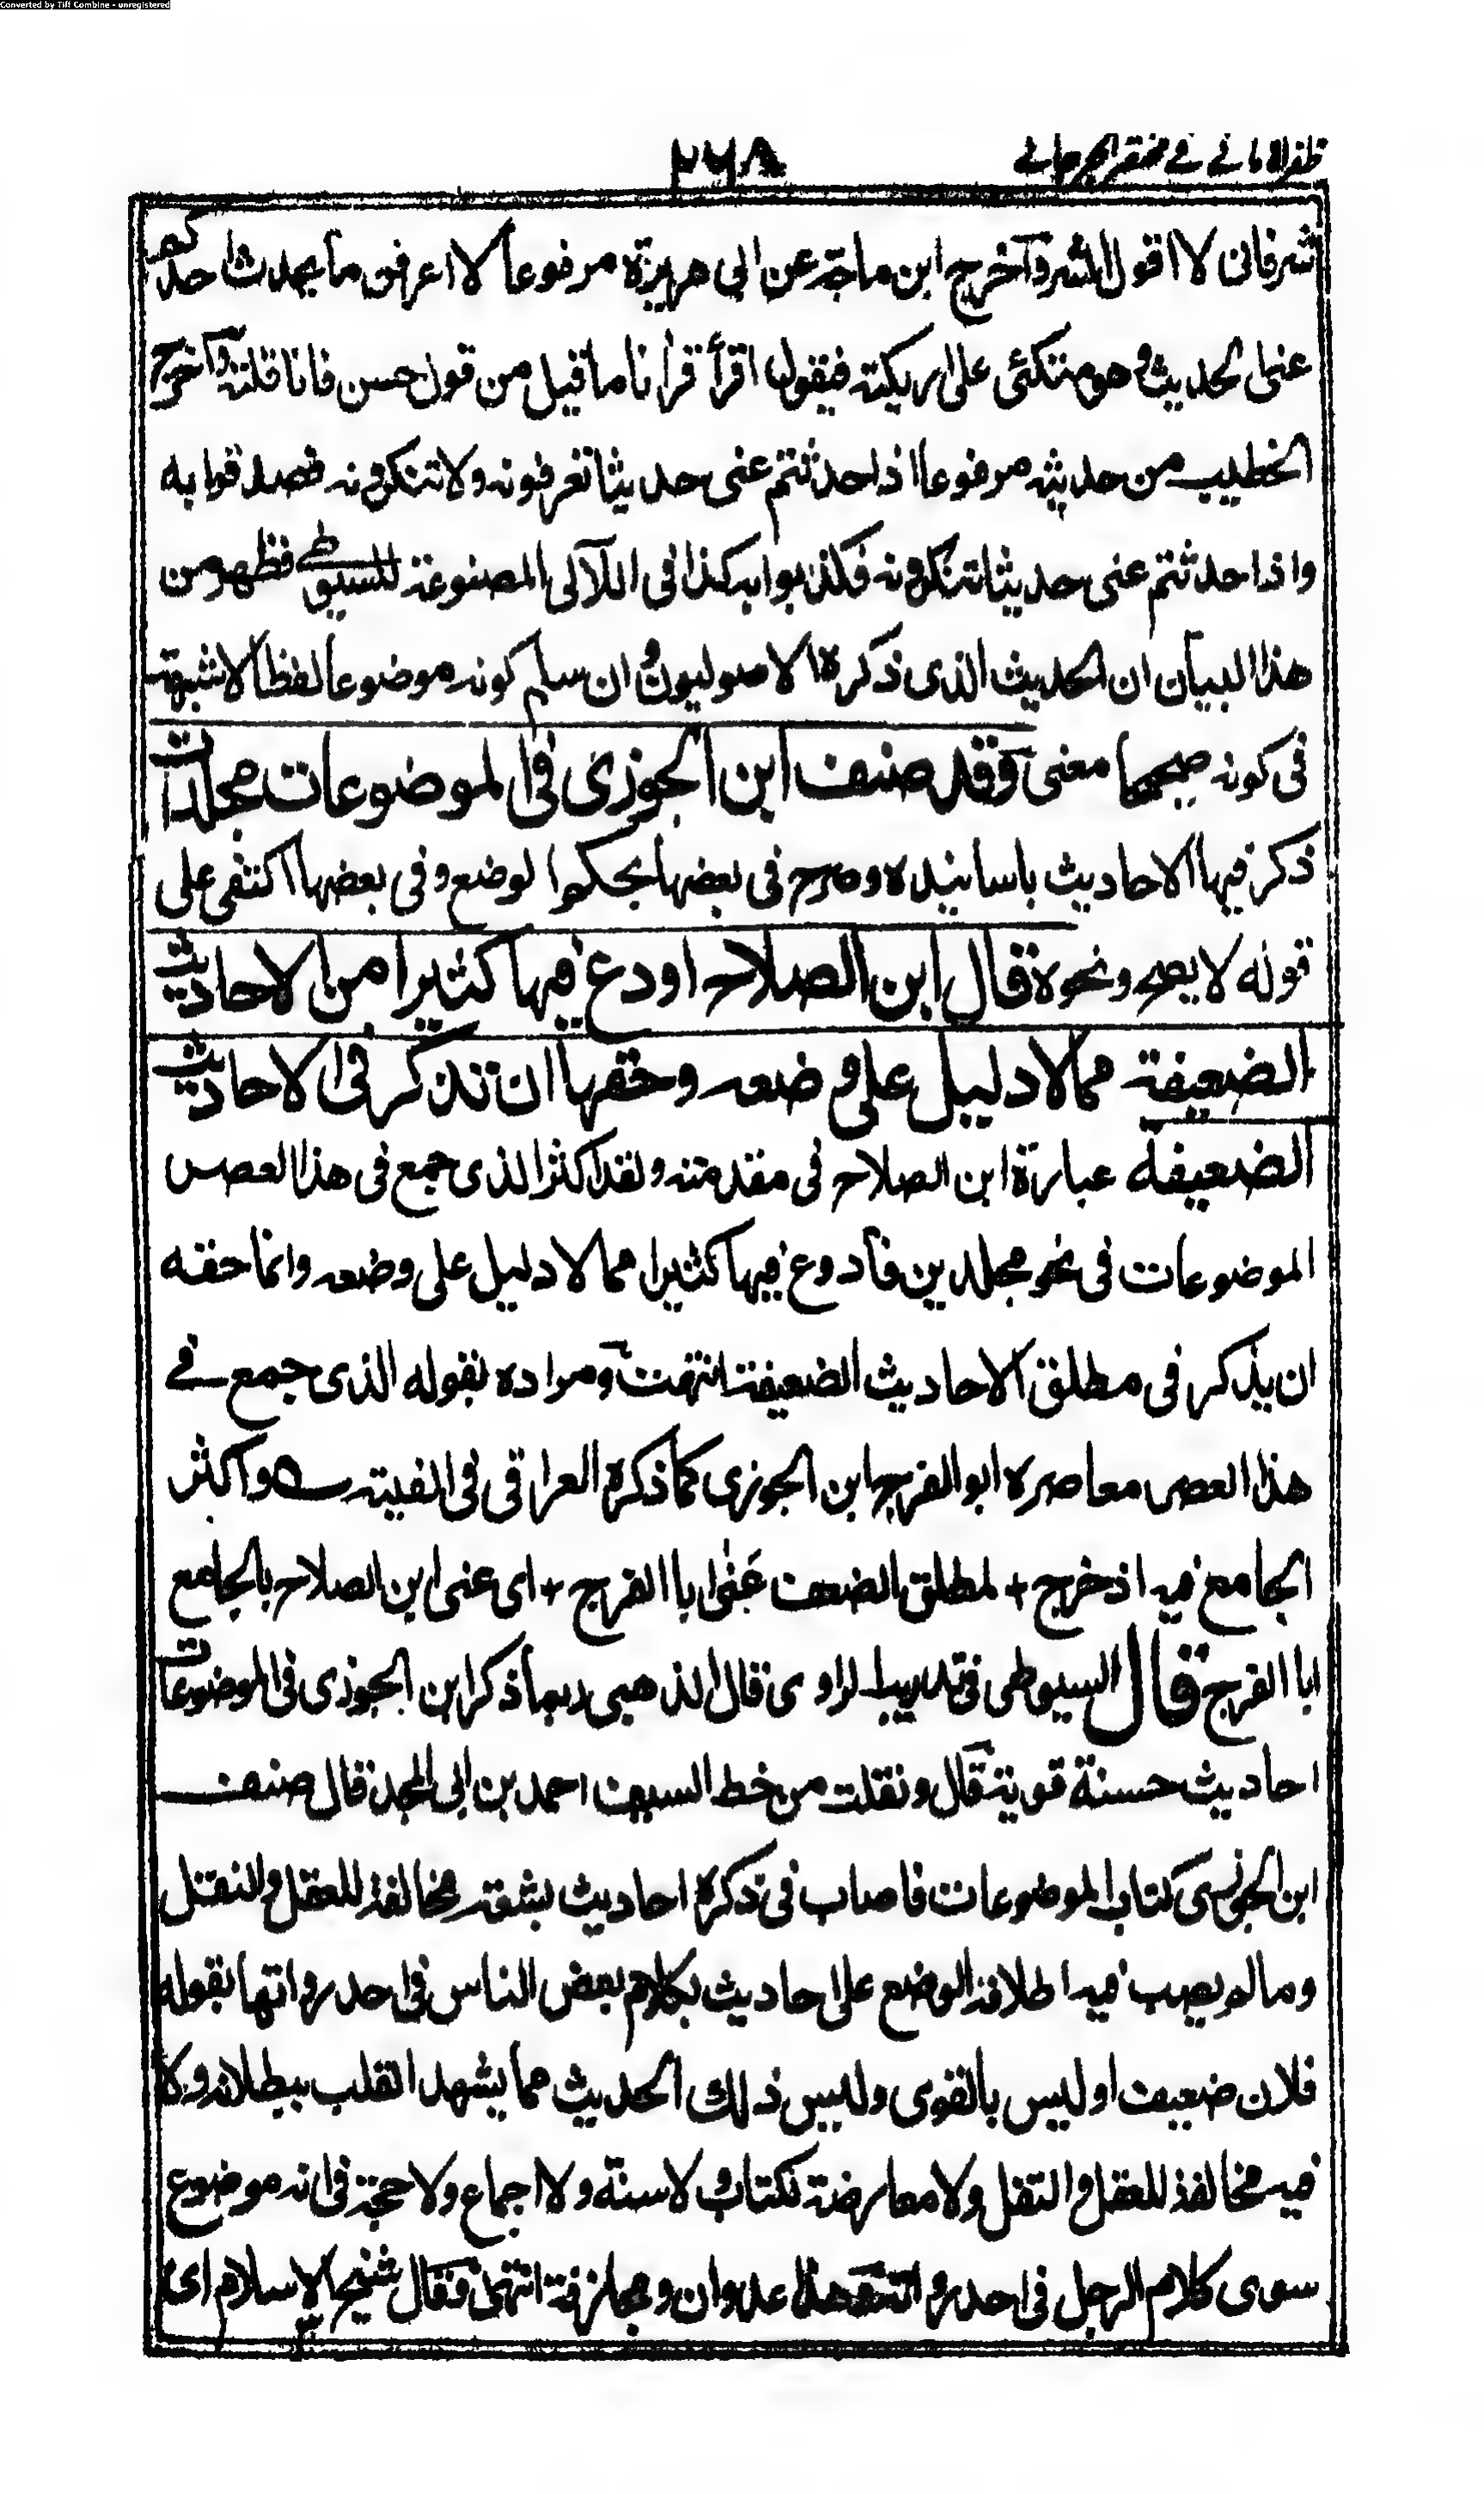 Converted by Tiff Combine - unregistered
ظفر الامانی فی مختصر الجرجانی ٢٦٨
شر فانی لا اقول الشر وآخرج ابن ماجة عن ابی هریرة مرفوعا لا اعرفن ما یحدث احدکم
عنی الحدیث وهو متکئی علی اریکته فیقول اقرأ قرانا ما قیل من قول حسن فانا قلته وآخرج
الخطیب من حدیثه مرفوعا اذا حدثتم عنی حدیثا تعرفونه ولا تنکرونه فصدقوا به
واذا حدثتم عنی حدیثا تنکرونه فکذبوا به کذا فی اللآلی المصنوعة للسیوطی فظهر من
هذا البیان ان الحدیث الذی ذکره الاصولیون وان سلم کونه موضوعا لفظا لا شبهة
فی کونه صحیحا معنی وقد صنف ابن الجوزی فی الموضوعات مجلدات
ذکر فیها الاحادیث باسانیده وصرح فی بعضها بحکم الوضع وفی بعضها اکتفی علی
قوله لا یصح ونحوه قال ابن الصلاح اودع فیها کثیرا من الاحادیث
الضعیفة مما لا دلیل علی وضعه وحقها ان تذکر فی الاحادیث
الضعیفة عبارة ابن الصلاح فی مقدمته ولقد اکثر الذی جمع فی هذا العصر
الموضوعات فی نحو مجلدین فأودع فیها کثیرا مما لا دلیل علی وضعه وانما حقه
ان یذکر فی مطلق الاحادیث الضعیفة انتهت ومراده بقوله الذی جمع فی
هذا العصر معاصره ابو الفرج ابن الجوزی کما ذکره العراقی فی الفیته ؎ واکثر
الجامع فیه اذ خرج + لمطلق الضعف عَنٰی ابا الفرج + ای عنی ابن الصلاح بالجامع
ابا الفرج قال السیوطی فی تدریب الراوی قال الذهبی ربما ذکر ابن الجوزی فی الموضوعات
احادیث حسنة قویة قال ونقلت من خط السیف احمد بن ابی المجد قال صنف
ابن الجوزی کتاب الموضوعات فاصاب فی ذکره احادیث بشعة مخالفة للعقل والنقل
ومما لم یصب فیه اطلاقه الوضع علی احادیث بکلام بعض الناس فی احد رواتها بقوله
فلان ضعیف او لیس بالقوی ولیس ذلک الحدیث مما یشهد القلب ببطلانه ولا
فیه مخالفة للعقل والنقل ولا معارضة لکتاب ولا سنة ولا اجماع ولا حجة فی انه موضوع
سوی کلام الرجل فی احد رواته وهذا عدوان ومجازفة انتهی فقال شیخ الاسلام ای